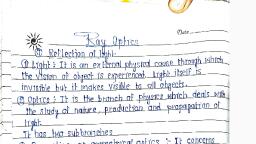 Date
Ray Optics
① Reflection of light
① Light : It is an external physical cause through which
the vision of object is experienced. Light itself is
invisible but it makes visible to all objects.
② Optics : It is the branch of physics which deals with
the study of nature, production and propagation of
light.
It has two subbranches
optics :- It concerns